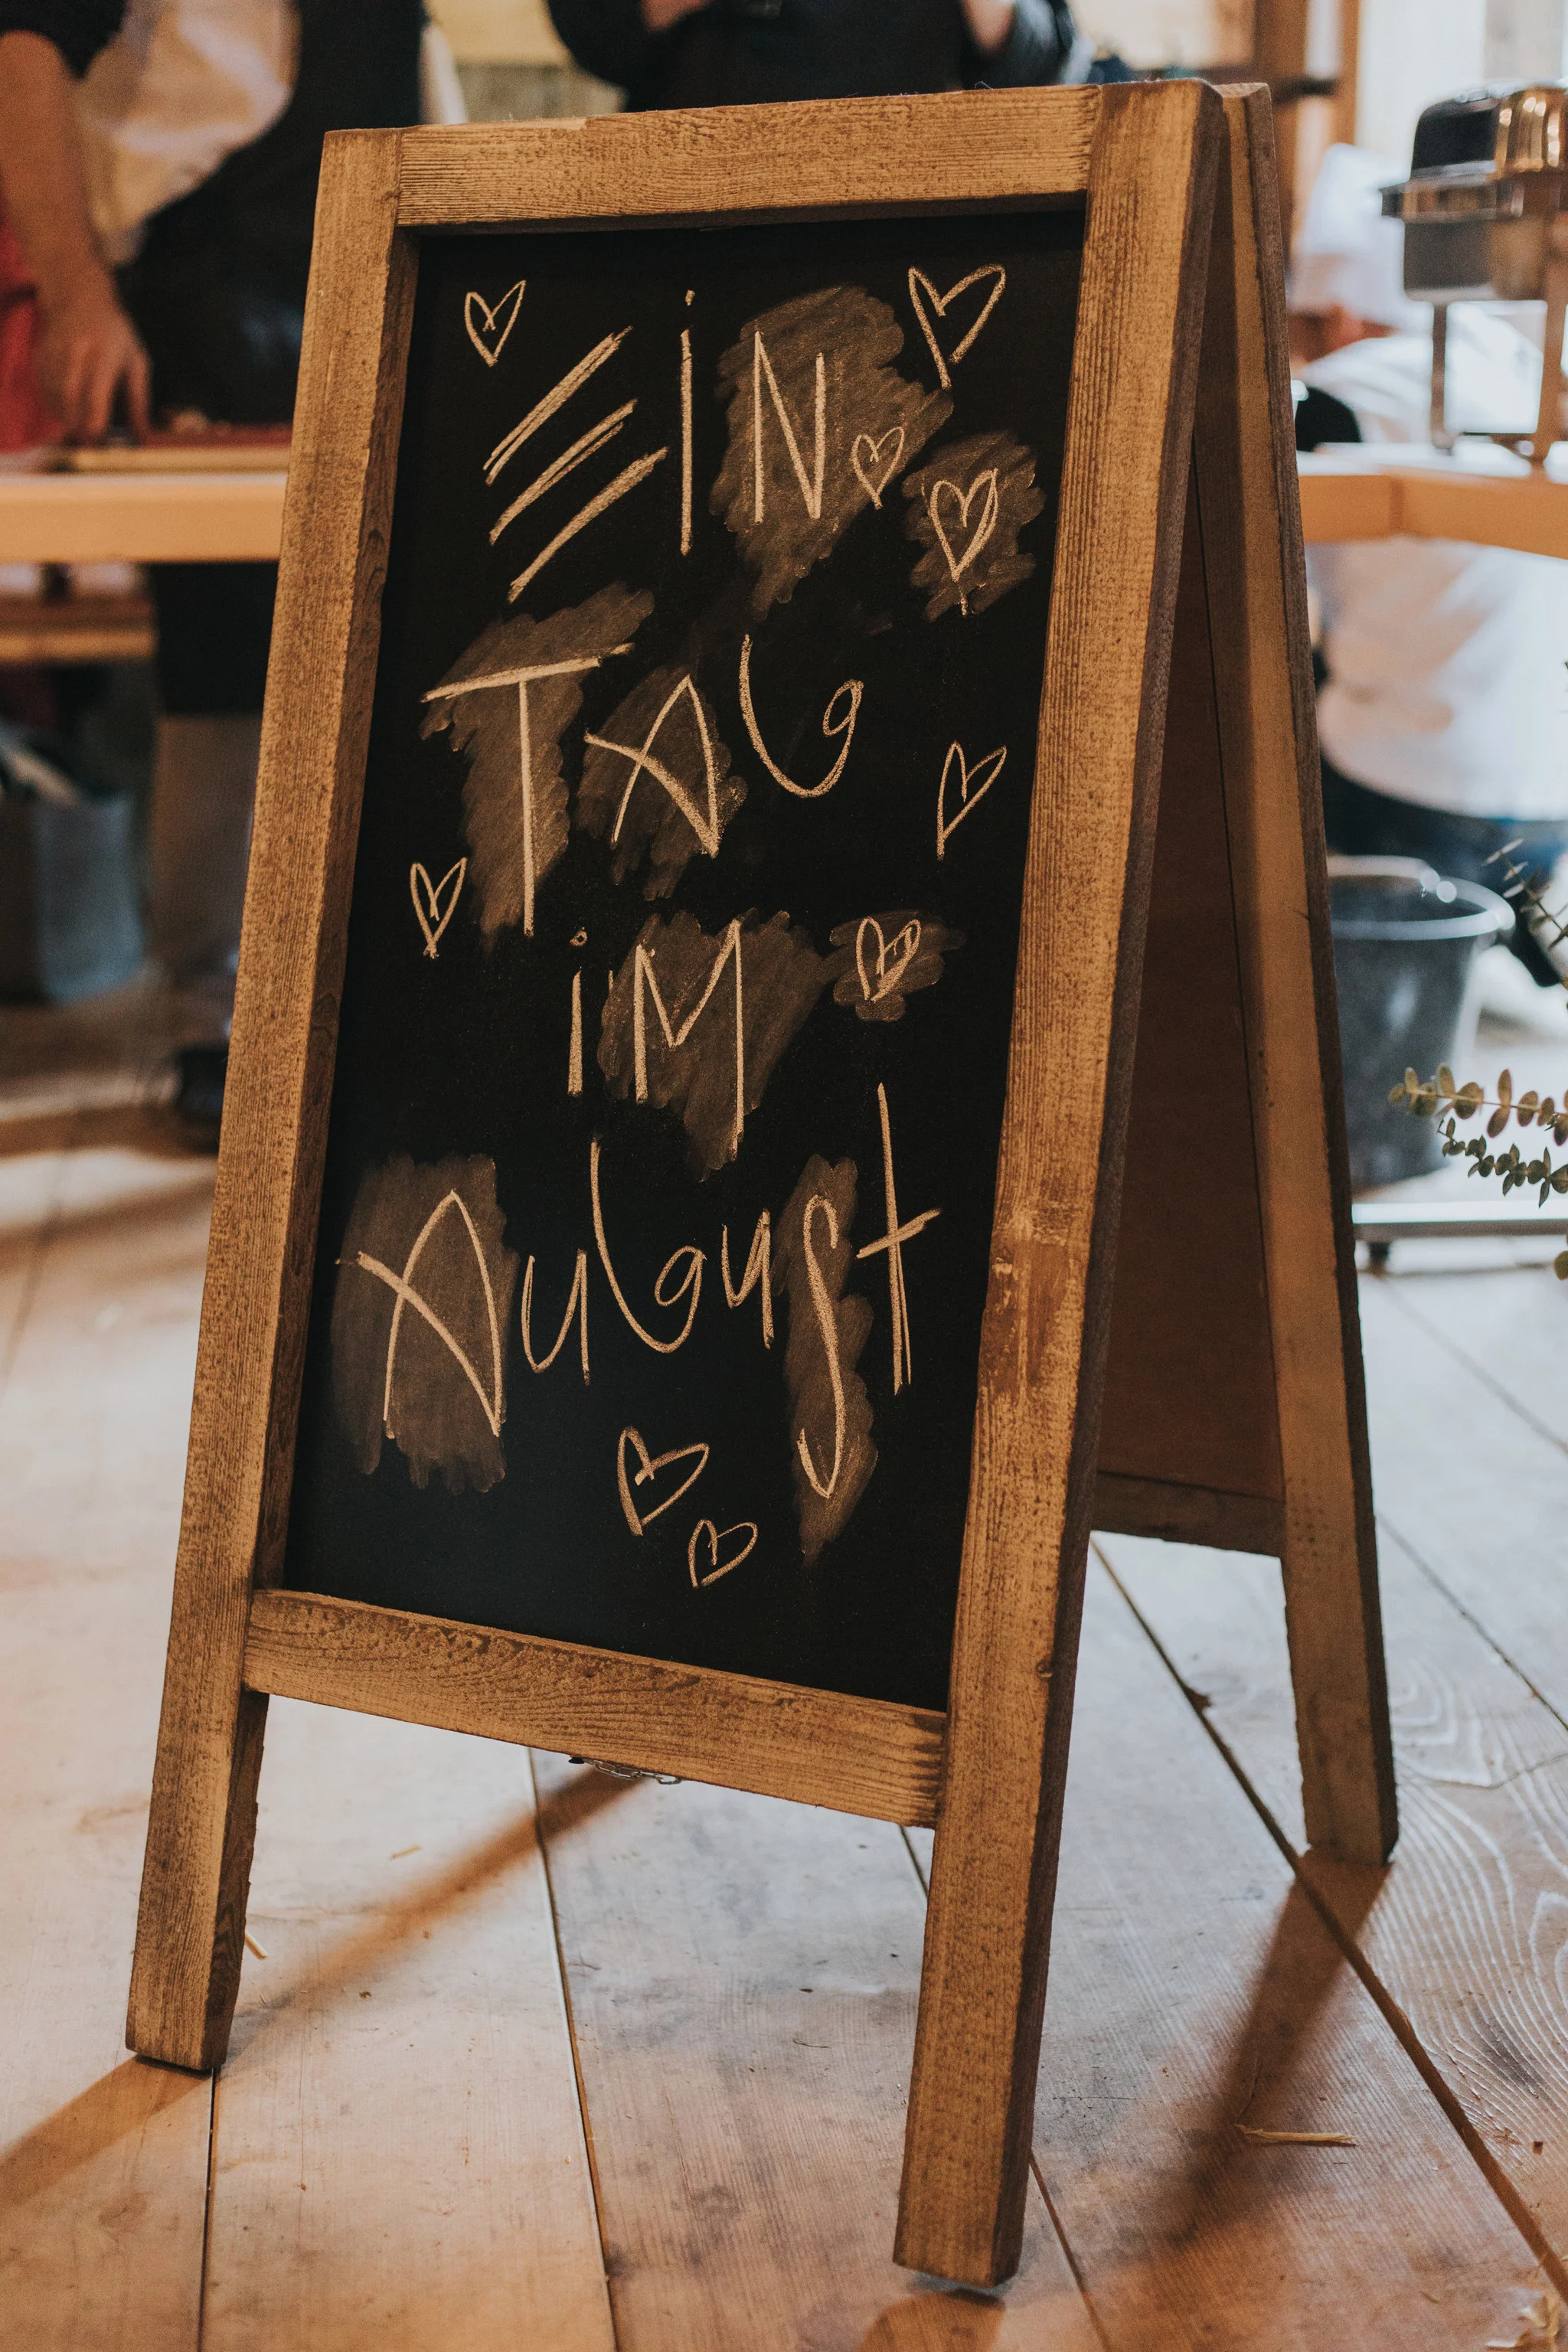 EiN
TAG
iM
AuGuSt